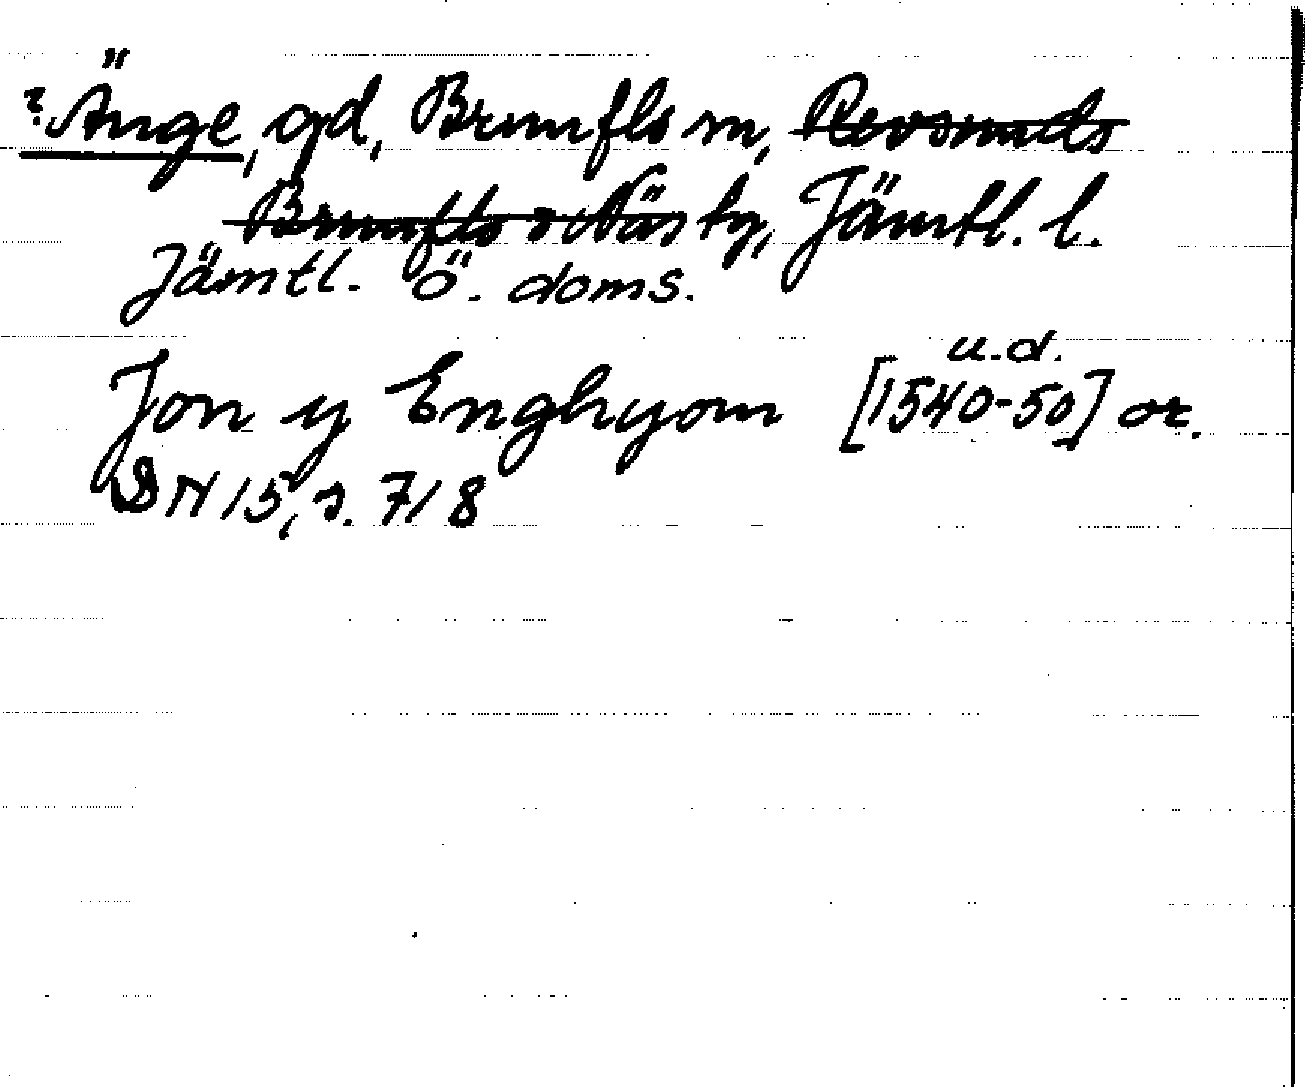 ? Änge, gd, Brunflo sn, Revsunds
Brunflo o Näs tg, Jämtl. l.
Jämtl. ö. doms.
u.d.
Jon y Enghyom [1540-50] or.
DN 15, s. 718